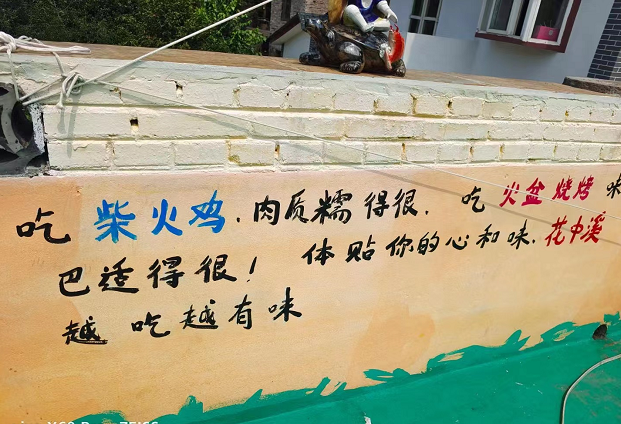 吃 柴火鸡，肉质糯得很，吃 火盆烧烤 味
巴适得很！ 体贴你的心和味，花中溪
越 吃越有味